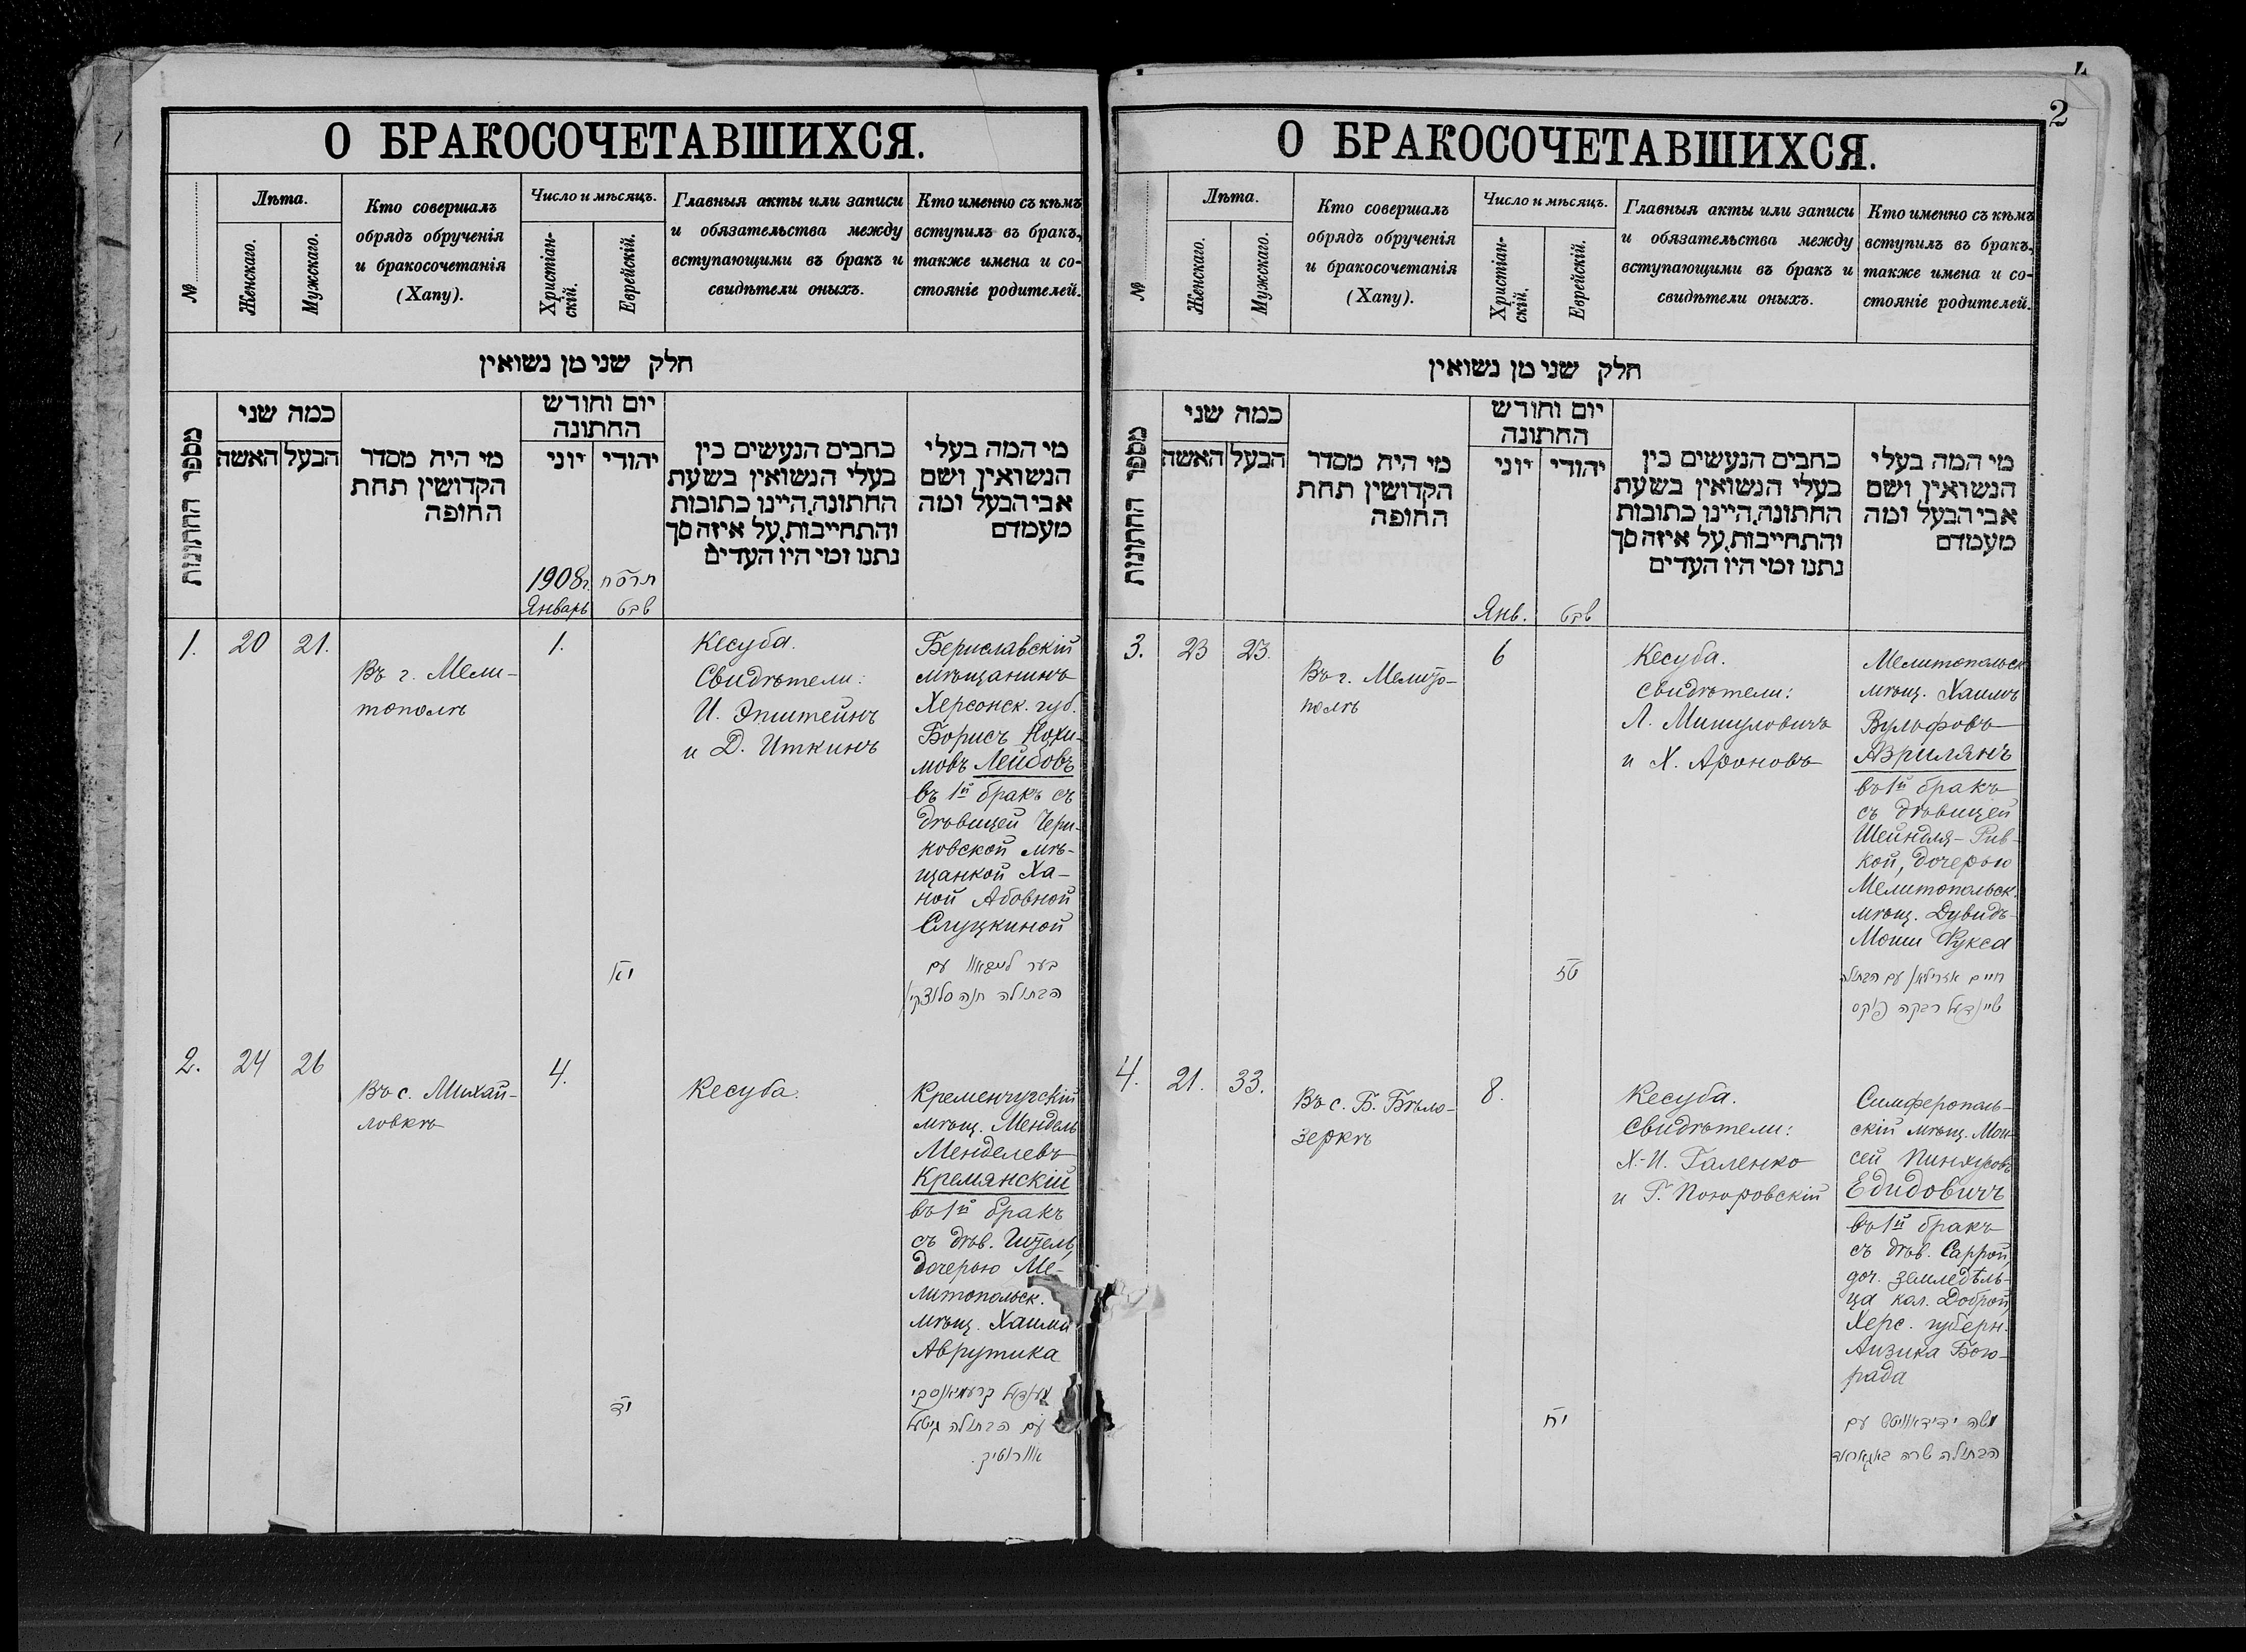 О БРАКОСОЧЕТАВШИХСЯ.
№
Лѣта.
Женскаго.
Мужскаго.
Кто совершалъ
обрядъ обрученія
и бракосочетанія
(Хапу).
Число и мѣсяцъ.
Христіан-
скій.
Еврейскій.
Главныя акты или записи
и обязательства между
вступающими въ бракъ и
свидѣтели оныхъ.
Кто именно съ кѣмъ
вступилъ въ бракъ,
также имена и со-
стояніе родителей.
חלק שני מן נשואין
מספר החתונות
כמה שני
האשה
הבעל
מי היה מסדר
הקדושין תחת
החופה
יום וחודש
החתונה
יוני
יהודי
1908г.
Январь
תרס״ח
שבט
כתבים הנעשים בין
בעלי הנשואין בשעת
החתונה, היינו כתובות
והתחייבות, על איזה סך
נתנו ומי היו העדים
מי המה בעלי
הנשואין, ושם
אבי הבעל ומה
מעמדם
1.
20
21.
Въ г. Мели-
тополѣ
1.
Кесуба.
Свидѣтели:
И. Эпштейнъ
и Д. Иткинъ
Бериславскій
мѣщанинъ
Херсонск. губ.
Борисъ Нохи-
мовъ Лейбовъ
въ 1й бракъ съ
дѣвицей Чери-
ковской мѣ-
щанкой Ха-
ной Абовной
Слуцкиной
יא
בער לייבאוו עם
הבתולה חנה סלוצקין
2.
24
26
Въ с. Михай-
ловкѣ
4.
Кесуба.
Кременчугскій
мѣщ. Мендель
Менделевъ
Кремянскій
въ 1й бракъ
съ дѣв. Гитель,
дочерью Ме-
литопольск.
мѣщ. Хаима
Аврутика
יד
מענדעל קרעמיאנסקי
עם הבתולה גיטעל
אוורוטיק.
2
О БРАКОСОЧЕТАВШИХСЯ.
№
Лѣта.
Женскаго.
Мужскаго.
Кто совершалъ
обрядъ обрученія
и бракосочетанія
(Хапу).
Число и мѣсяцъ.
Христіан-
скій.
Еврейскій.
Главныя акты или записи
и обязательства между
вступающими въ бракъ и
свидѣтели оныхъ.
Кто именно съ кѣмъ
вступилъ въ бракъ,
также имена и со-
стояніе родителей.
חלק שני מן נשואין
מספר החתונות
כמה שני
האשה
הבעל
מי היה מסדר
הקדושין תחת
החופה
יום וחודש
החתונה
יוני
יהודי
Янв.
שבט
כתבים הנעשים בין
בעלי הנשואין בשעת
החתונה, היינו כתובות
והתחייבות, על איזה סך
נתנו ומי היו העדים
מי המה בעלי
הנשואין, ושם
אבי הבעל ומה
מעמדם
3.
23
23.
Въ г. Мелито-
полѣ
6
Кесуба.
Свидѣтели:
Л. Мишуловичъ
и Х. Ароновъ
Мелитопольск.
мѣщ. Хаимъ
Вульфовъ
Азрилянъ
въ 1й бракъ
съ дѣвицей
Шейндля-Рив-
кой, дочерью
Мелитопольск.
мѣщ. Дувидъ-
Моши Фукса
טז
חיים אזרילאן עם הבתולה
שיינדעל רבקה פוקס
4.
21.
33.
Въ с. Б. Бѣло-
зеркѣ
8.
Кесуба.
Свидѣтели:
Х.-И. Галенко
и Г. Погоровскій
Симферополь-
скій мѣщ. Мои-
сей Пинхусовъ
Едидовичъ
въ 1й бракъ
съ дѣв. Саррой,
доч. земледѣль-
ца кол. Доброй,
Херс. губерн.
Аизика Бого-
рада
יח
משה ידידאוויטש עם
הבתולה שרה באגאראד